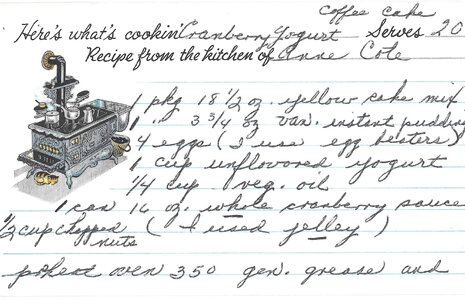 coffee cake
Here's what's cookin' Cranberry Yogurt Serves 20
Recipe from the kitchen of Anne Cole
1 pkg 18 1/2 oz. yellow cake mix
1 " 3 3/4 oz van. instant pudding
4 eggs (I use egg beaters)
1 cup unflovored yogurt
1/4 cup veg. oil
1 can 16 oz. whole cranberry sauce
1/2 cup chopped (I used jelley)
nuts
preheat oven 350 gen. grease and